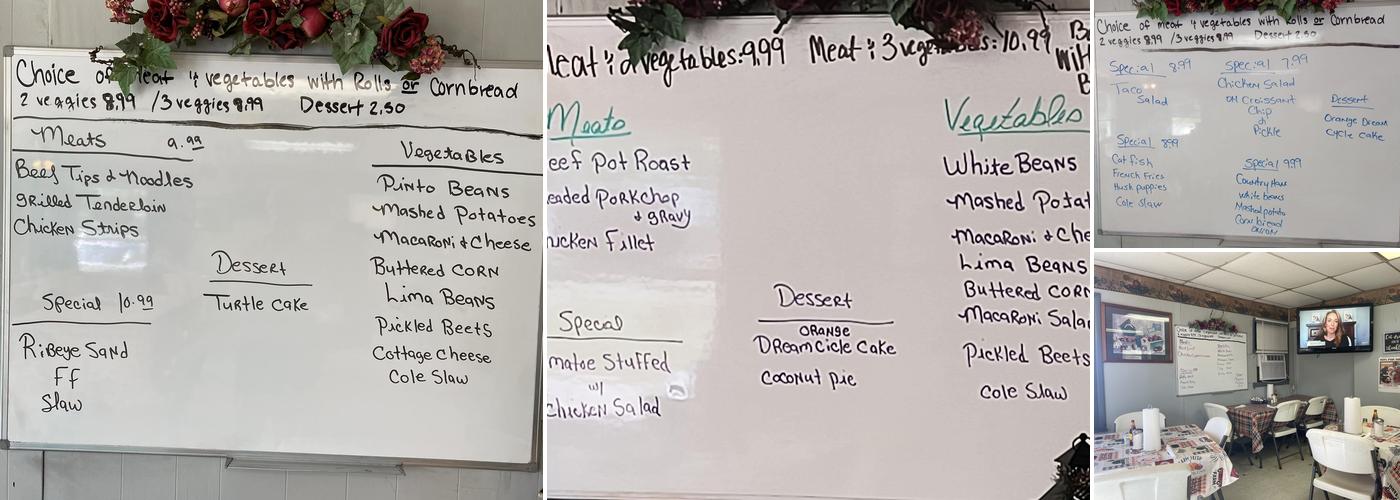 Choice of meat & vegetables with Rolls or Cornbread
2 veggies 8.99 / 3 veggies 9.99 Dessert 2.50
Meats 9.99
Beef Tips & Noodles
grilled Tenderloin
Chicken Strips
Special 10.99
Ribeye Sand
Ff
Slaw
Dessert
Turtle Cake
Vegetables
Pinto Beans
Mashed Potatoes
Macaroni & Cheese
Buttered Corn
Lima Beans
Pickled Beets
Cottage Cheese
Cole Slaw
eat & 2 vegetables: 9.99 Meat & 3 vegetables: 10.99
Meats
eef Pot Roast
eaded Porkchop
& gravy
icken Fillet
Special
matoe Stuffed
w/
Chicken Salad
Dessert
ORANGE
DReamcicle Cake
Coconut pie
Vegetables
White Beans
Mashed Potat
Macaroni & Che
Lima Beans
Buttered Corn
Macaroni Salad
Pickled Beets
Cole Slaw
Choice of meat & vegetables with Rolls or Cornbread
2 veggies 8.99 / 3 veggies 9.99 Dessert 2.50
Special 8.99
Taco
Salad
Special 8.99
Catfish
French Fries
Hush puppies
Cole Slaw
Special 7.99
Chicken Salad
on Croissant
Chip
&
Pickle
Special 9.99
Country Ham
white beans
Mashed potato
Cornbread
onion
Dessert
Orange Dream
Cycle Cake